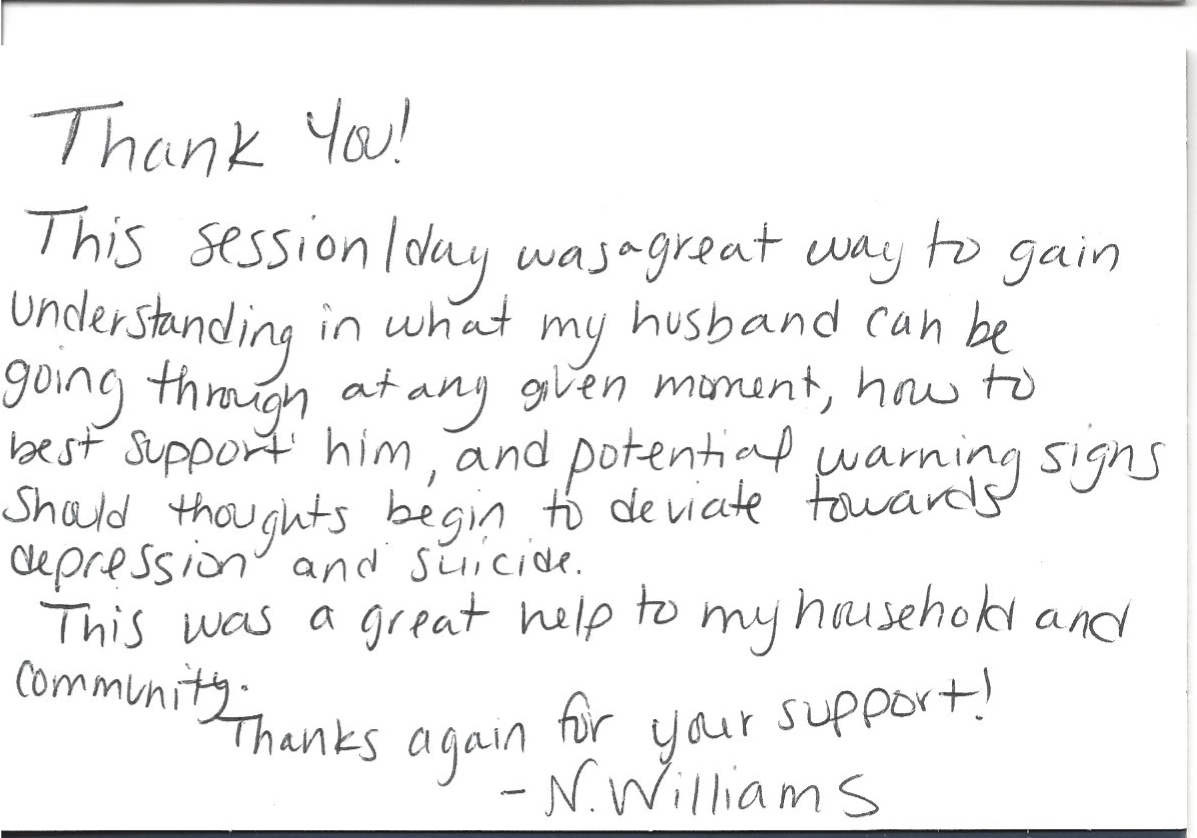 Thank You!
This session/day was a great way to gain
understanding in what my husband can be
going through at any given moment, how to
best support him, and potential warning signs
should thoughts begin to deviate towards
depression and suicide.
This was a great help to my household and
community.
Thanks again for your support!
- N. Williams